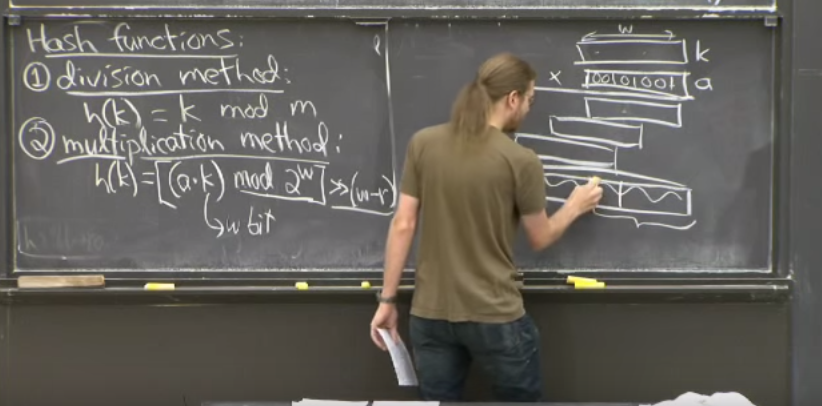 Hash functions:
① division method:
h(k) = k mod m
② multiplication method:
h(k) = [(a·k) mod 2^w] >> (w-r)
w bit
w
k
x 00101001 a